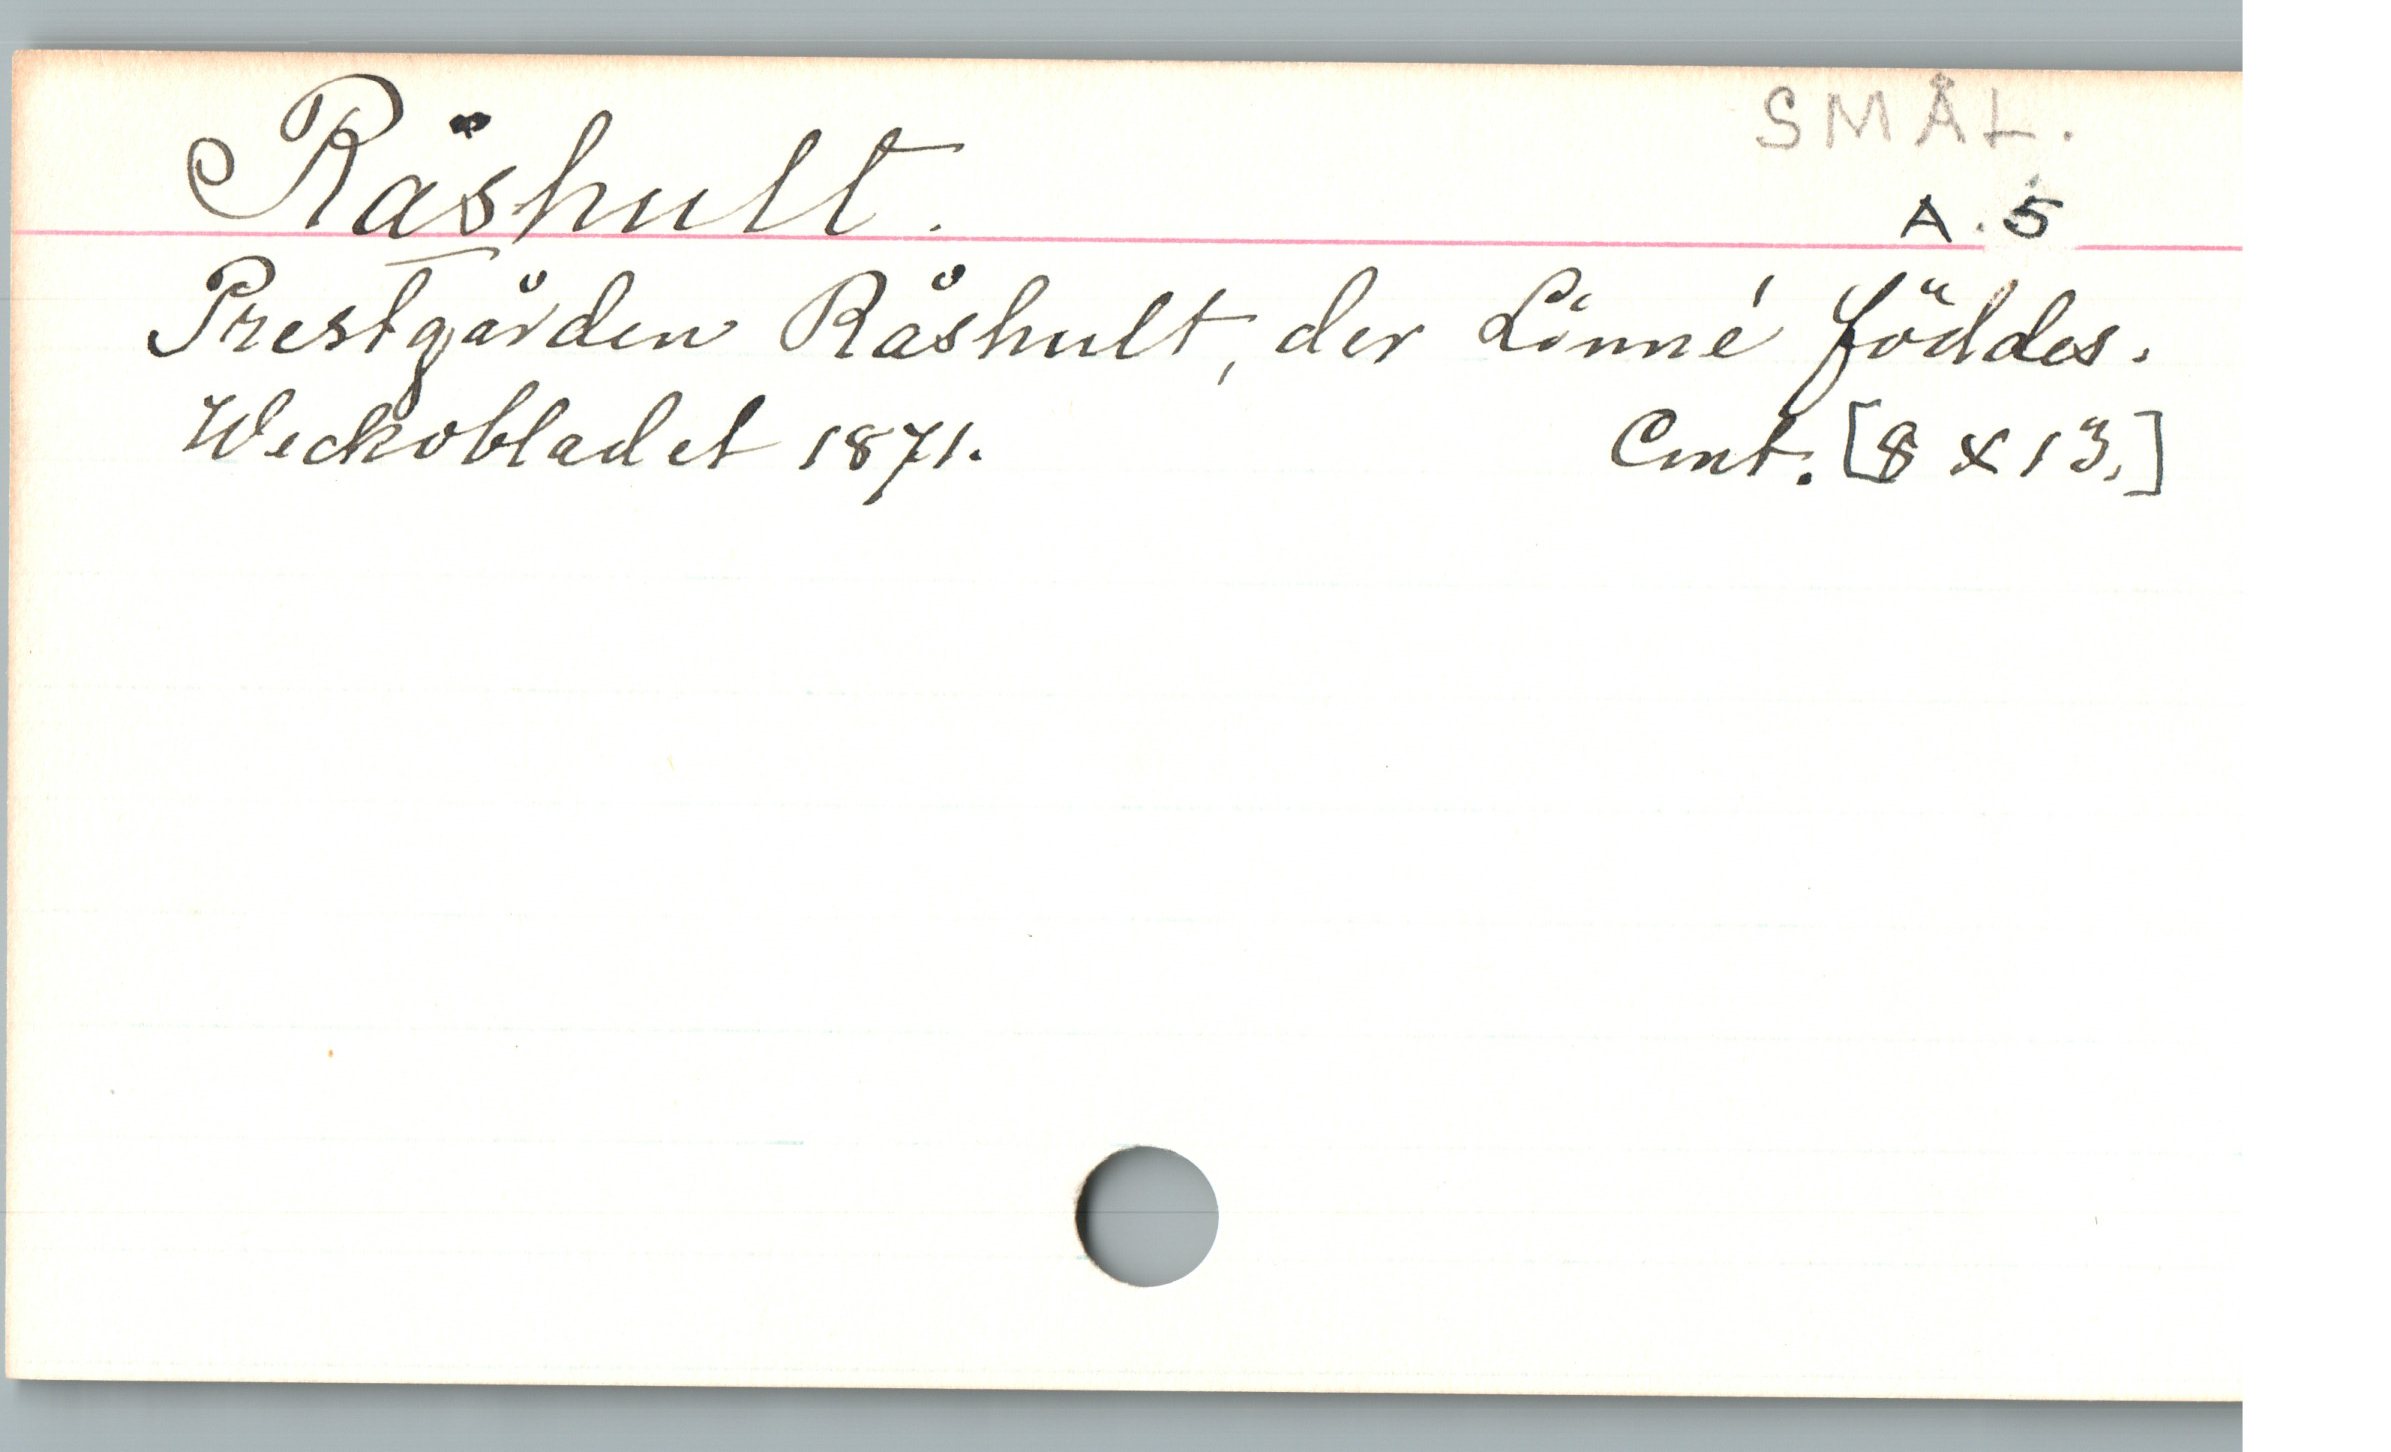 SMÅL.
Råshult.
A. 5
Prestgården Råshult, der Linné föddes.
Weckobladet 1871. Cmt. [8 x 13.]